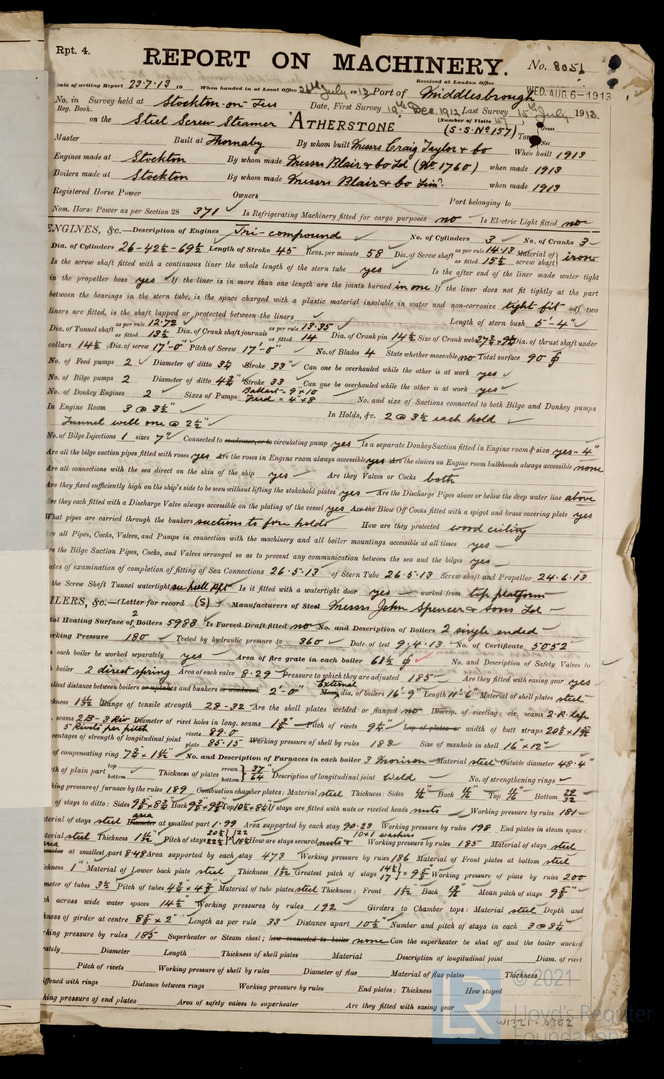 Rpt. 4.
REPORT ON MACHINERY.
No. 8051
Date of writing Report 23.7.13 19 When handed in at Local Office 26th July 19 13 Port of Middlesbrough
Received at London Office
WED. AUG. 6 - 1913
No. in Survey held at Stockton-on-Tees Date, First Survey 19th Dec. 1912 Last Survey 15th July 1913.
Reg. Book. (Number of Visits 47
on the Steel Screw Steamer "ATHERSTONE (S.S. No 157)
Master Built at Thornaby By whom built Messrs Craig Taylor & Co When built 1913
Engines made at Stockton By whom made Messrs Blair & Co Ld (No 1760) when made 1913
Boilers made at Stockton By whom made Messrs Blair & Co Lim. when made 1913
Registered Horse Power Owners Port belonging to
Nom. Horse Power as per Section 28 371 Is Refrigerating Machinery fitted for cargo purposes no Is Electric Light fitted no
ENGINES, &c.—Description of Engines Tri-compound No. of Cylinders 3 No. of Cranks 3
Dia. of Cylinders 26-42½-69½ Length of Stroke 45 Revs. per minute 58 Dia. of Screw shaft as per rule 14.13 as fitted 15½ Material of screw shaft iron
Is the screw shaft fitted with a continuous liner the whole length of the stern tube yes Is the after end of the liner made water tight
in the propeller boss yes If the liner is in more than one length are the joints burned in one If the liner does not fit tightly at the part
between the bearings in the stern tube, is the space charged with a plastic material insoluble in water and non-corrosive tight fit If two
liners are fitted, is the shaft lapped or protected between the liners Length of stern bush 5'-4"
Dia. of Tunnel shaft as per rule 12.72 as fitted 13½ Dia. of Crank shaft journals as per rule 13.35 as fitted 14 Dia. of Crank pin 14½ Size of Crank webs Dia. of thrust shaft under
collars 14½ Dia. of screw 17'-0" Pitch of Screw 17'-0" No. of Blades 4 State whether moveable no Total surface 90
No. of Feed pumps 2 Diameter of ditto 3½ Stroke 33" Can one be overhauled while the other is at work yes
No. of Bilge pumps 2 Diameter of ditto 4½ Stroke 33 Can one be overhauled while the other is at work yes
No. of Donkey Engines 2 Sizes of Pumps Ballast - 9" × 10 Feed - 4 × 8 No. and size of Suctions connected to both Bilge and Donkey pumps
In Engine Room 3 @ 3½" In Holds, &c. 2 @ 3½ each hold
Tunnel well one @ 2½"
No. of Bilge Injections 1 sizes 7" Connected to circulating pump yes Is a separate Donkey Suction fitted in Engine room & size yes - 4"
Are all the bilge suction pipes fitted with roses yes Are the roses in Engine room always accessible yes Are the sluices on Engine room bulkheads always accessible none
Are all connections with the sea direct on the skin of the ship yes Are they Valves or Cocks both
Are they fixed sufficiently high on the ship's side to be seen without lifting the stokehold plates yes Are the Discharge Pipes above or below the deep water line above
Are they each fitted with a Discharge Valve always accessible on the plating of the vessel yes Are the Blow Off Cocks fitted with a spigot and brass covering plate yes
What pipes are carried through the bunkers suctions to fore holds How are they protected wood ceiling
re all Pipes, Cocks, Valves, and Pumps in connection with the machinery and all boiler mountings accessible at all times yes
re the Bilge Suction Pipes, Cocks, and Valves arranged so as to prevent any communication between the sea and the bilges yes
ates of examination of completion of fitting of Sea Connections 26.5.13 of Stern Tube 26.5.13 Screw shaft and Propeller 24.6.13
the Screw Shaft Tunnel watertight see hull rpt Is it fitted with a watertight door yes worked from top platform
ILERS, &c.—(Letter for record (S) Manufacturers of Steel Messrs John Spencer & Sons Ltd
tal Heating Surface of Boilers 2 5988 Is Forced Draft fitted no No. and Description of Boilers 2 single ended
orking Pressure 180 Tested by hydraulic pressure to 360 Date of test 9.4.13 No. of Certificate 5052
each boiler be worked separately yes Area of fire grate in each boiler 61½ No. and Description of Safety Valves to
boiler 2 direct spring Area of each valve 8.29 Pressure to which they are adjusted 185 Are they fitted with easing gear yes
allest distance between boilers and bunkers 2'-0" External dia. of boilers 16'-9" Length 11'-6" Material of shell plates steel
ckness Range of tensile strength 28-32 Are the shell plates welded or flanged no Descrip. of riveting: cir. seams 2.R. Lap
seams 2B-3 Riv Diameter of rivet holes in long. seams Pitch of rivets width of butt straps
5 Rivets per pitch
centages of strength of longitudinal joint rivets 89.0 plate 85.15 Working pressure of shell by rules 188 Size of manhole in shell 16" × 12"
of compensating ring 7½ × 1½" No. and Description of Furnaces in each boiler 3 Morison Material steel Outside diameter 48.4"
th of plain part top bottom Thickness of plates crown 37 bottom 64 Description of longitudinal joint Weld No. of strengthening rings
king pressure of furnace by the rules 189 Combustion chamber plates: Material steel Thickness: Sides Back Top Bottom
of stays to ditto: Sides Back Top If stays are fitted with nuts or riveted heads nuts Working pressure by rules 181
aterial of stays steel area at smallest part 1.99 Area supported by each stay 90.23 Working pressure by rules 198 End plates in steam space:
terial steel Thickness Pitch of stays How are stays secured nuts & 10×1 washers Working pressure by rules 185 Material of stays steel
area at smallest part 8.48 Area supported by each stay 473 Working pressure by rules 186 Material of Front plates at bottom steel
ckness 1" Material of Lower back plate steel Thickness Greatest pitch of stays Working pressure of plate by rules 200
meter of tubes 3½ Pitch of tubes Material of tube plates steel Thickness: Front Back Mean pitch of stays
ch across wide water spaces 14½" Working pressures by rules 192 Girders to Chamber tops: Material steel Depth and
kness of girder at centre Length as per rule 33 Distance apart 10½" Number and pitch of stays in each 3 @
king pressure by rules 185 Superheater or Steam chest; how connected to boiler none Can the superheater be shut off and the boiler worked
rately Diameter Length Thickness of shell plates Material Description of longitudinal joint Diam. of rivet
Pitch of rivets Working pressure of shell by rules Diameter of flue Material of flue plates Thickness
iffened with rings Distance between rings Working pressure by rules End plates: Thickness How stayed
king pressure of end plates Area of safety valves to superheater Are they fitted with easing gear
© 2021
LR
Lloyd's Register
Foundation